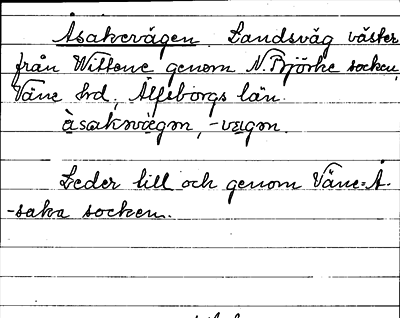 Åsakevägen. Landsväg väster
från Wittene genom N. Björke socken,
Väne hd, Älfsborgs län.
àsakəvæ̀gən, -vægən.
Leder till och genom Väne-Å-
-saka socken.